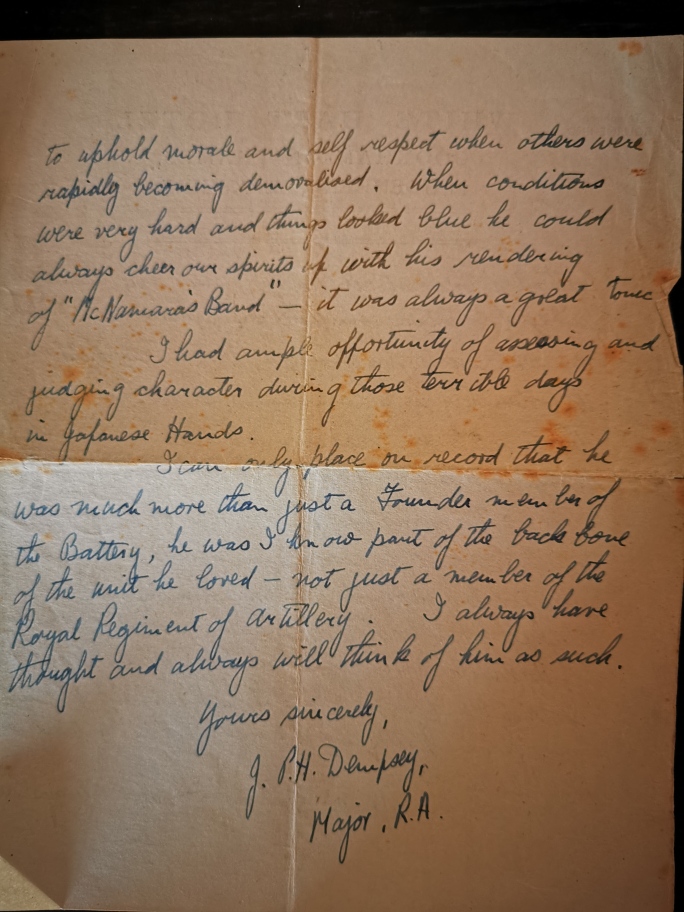 to uphold morale and self respect when others were
rapidly becoming demoralised. When conditions
were very hard and things looked blue he could
always cheer our spirits up with his rendering
of "McNamara's Band" — it was always a great tonic
I had ample opportunity of assessing and
judging character during those terrible days
in Japanese Hands.
I can only place on record that he
was much more than just a Founder member of
the Battery, he was I know part of the back bone
of the unit he loved – not just a member of the
Royal Regiment of Artillery. I always have
thought and always will think of him as such.
Yours sincerely,
J. P.H. Dempsey,
Major, R.A.